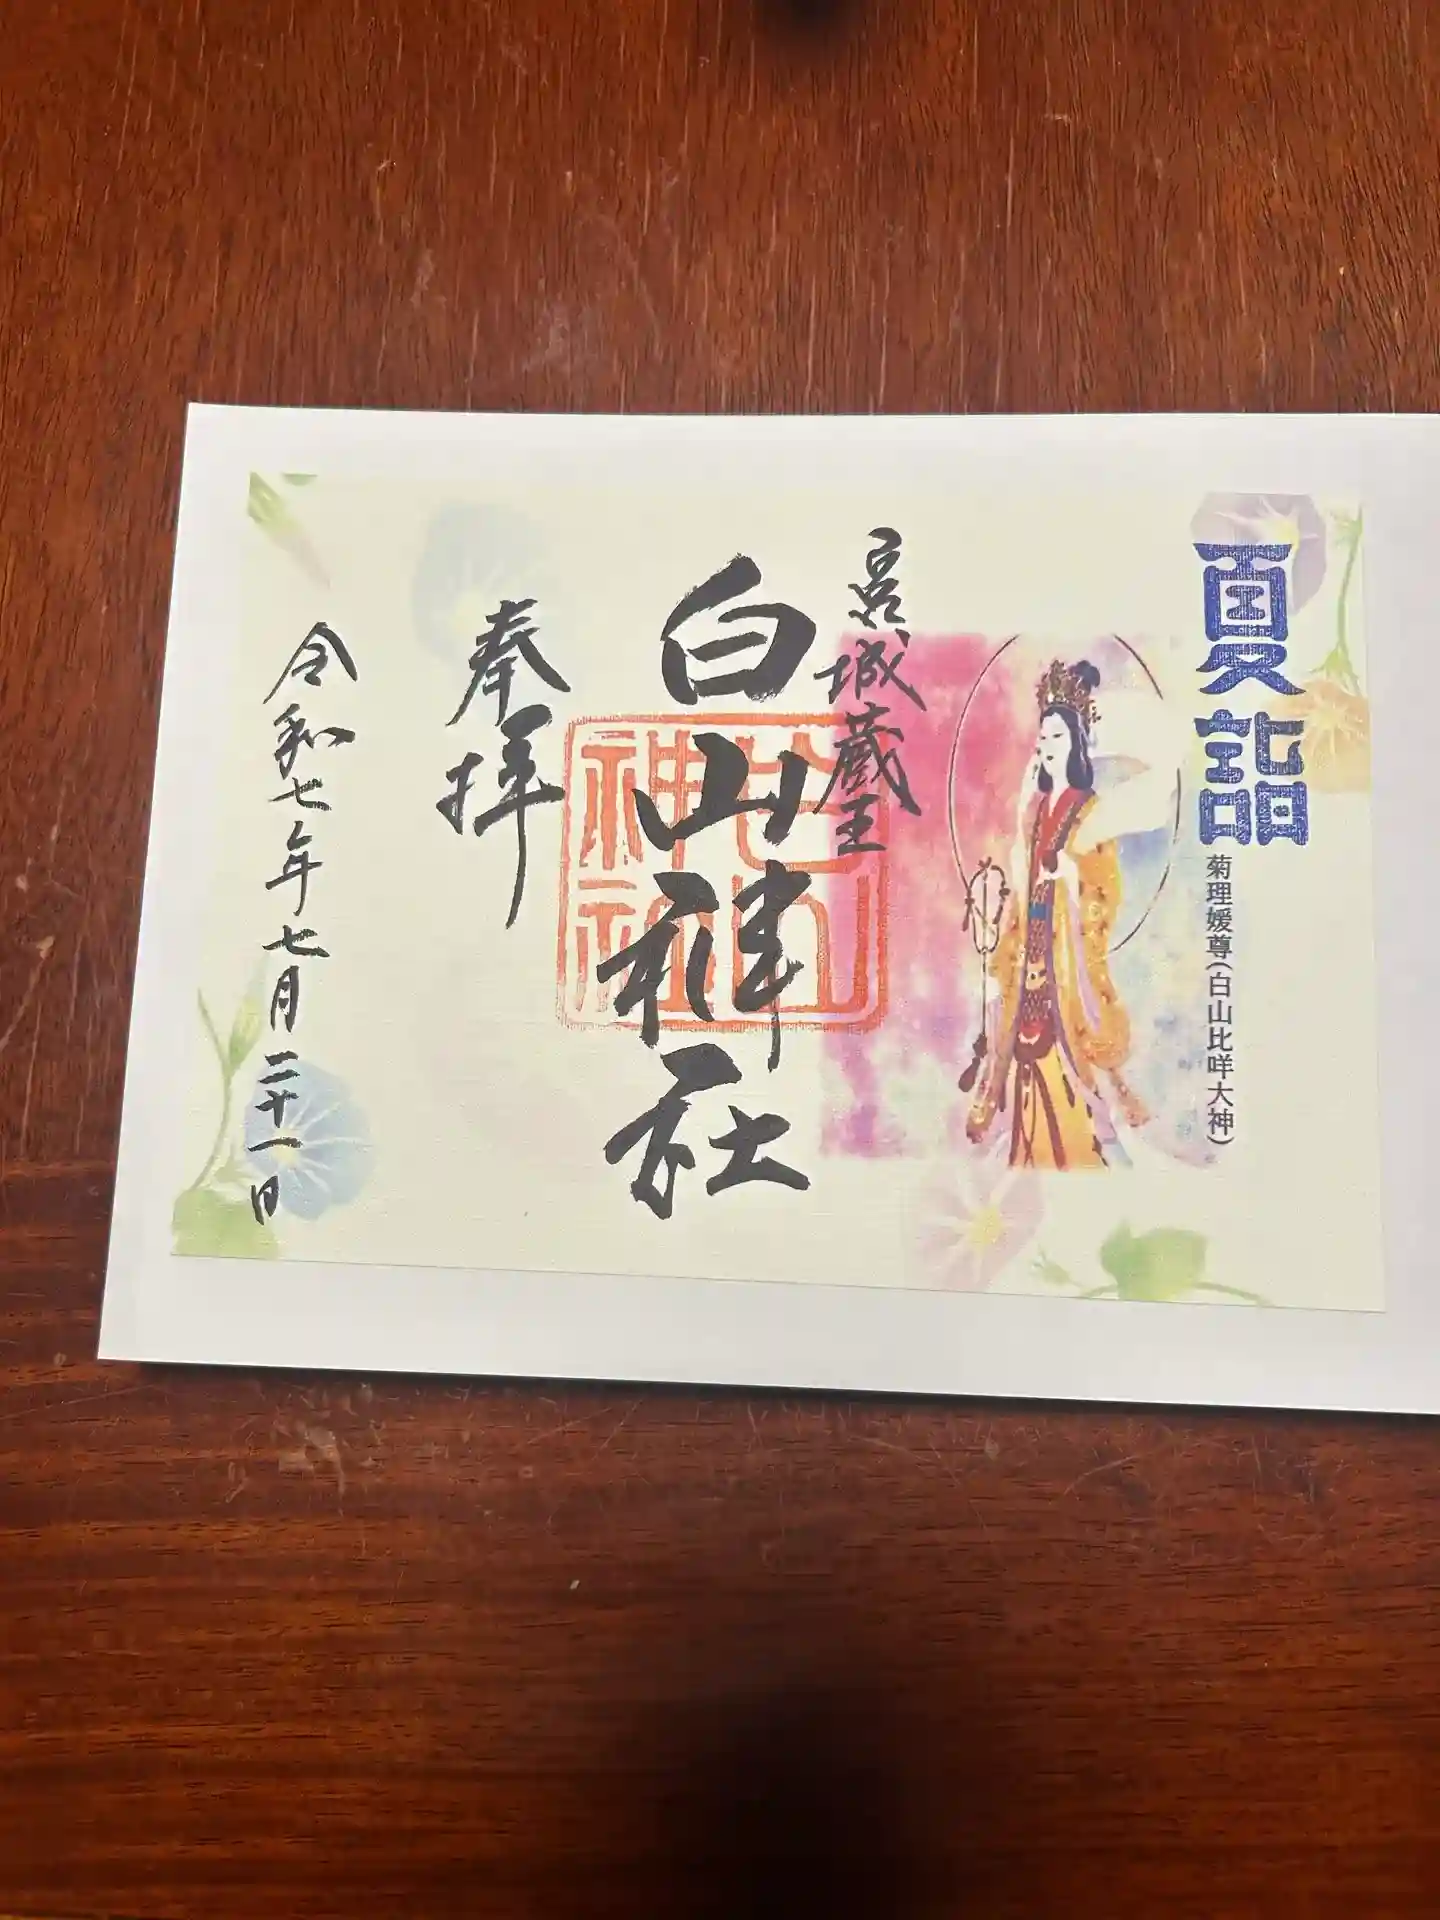 夏詣
菊理媛尊(白山比咩大神)
宮城蔵王
白山神社
白山
神社
奉拝
令和七年七月二十一日